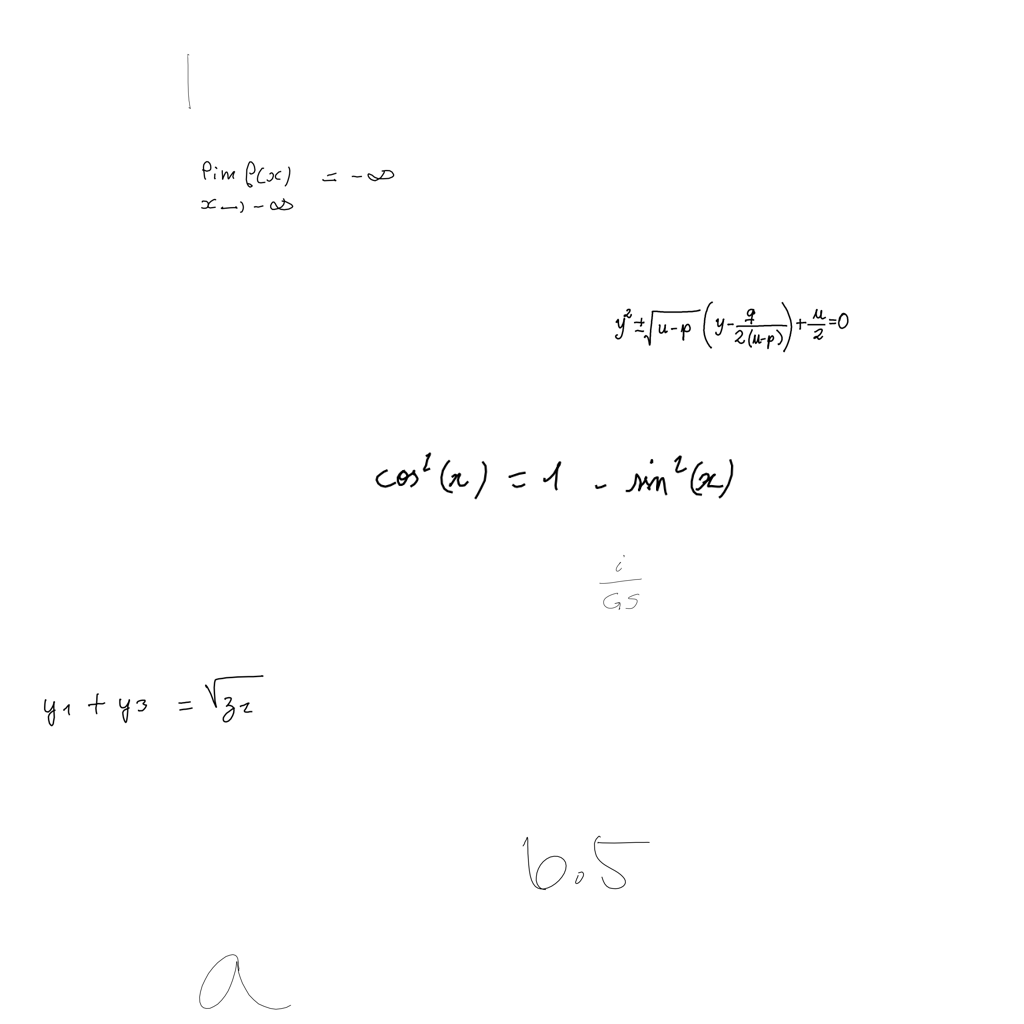 |
lim f(x) = -∞
x→-∞
y² ± √(u-p) (y - q/(2(u-p))) + u/2 = 0
cos²(x) = 1 - sin²(x)
i/GS
y₁ + y₃ = √z₂
6.5
a